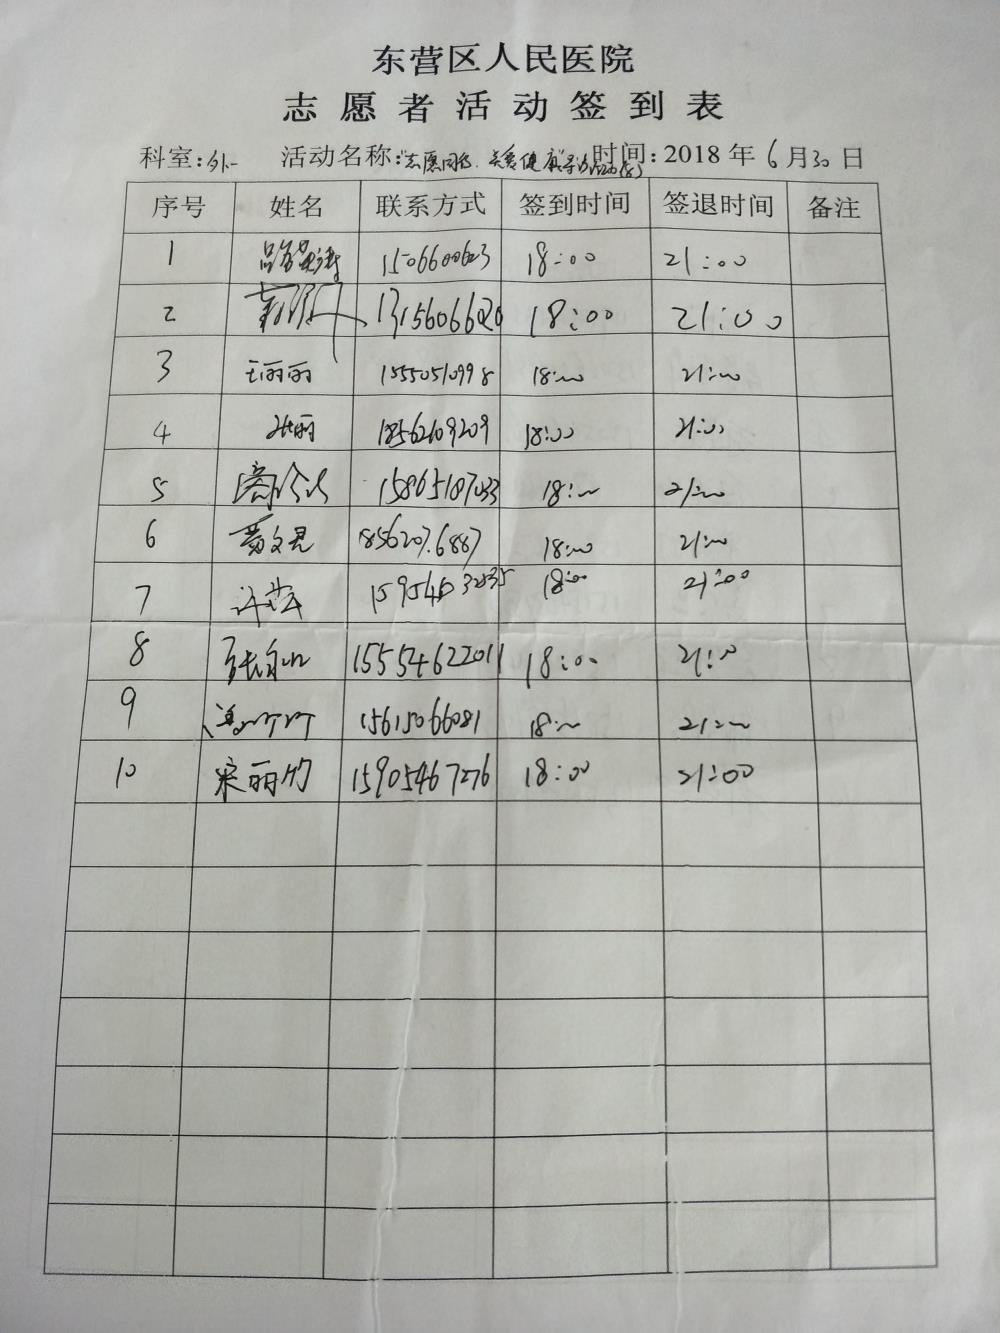 东营区人民医院
志愿者活动签到表
科室:外一 活动名称:"志愿同行、关爱健康" 时间:2018年6月30日
序号 姓名 联系方式 签到时间 签退时间 备注
1 18:00 21:00
2 18:00 21:00
3 王丽丽 15550510998 18:00 21:00
4 张丽 18562109209 18:00 21:00
5 15865187033 18:00 21:00
6 18562076887 18:00 21:00
7 许 18:00 21:00
8 张 15554622011 18:00 21:00
9 15615066081 18:00 21:00
10 宋丽竹 15905467276 18:00 21:00